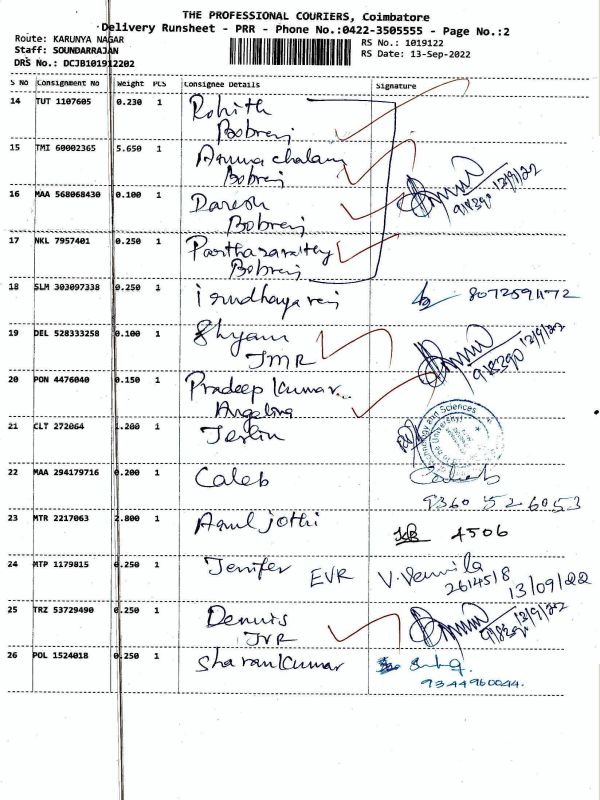 THE PROFESSIONAL COURIERS, Coimbatore
Delivery Runsheet - PRR - Phone No.:0422-3505555 - Page No.:2
Route: KARUNYA NAGAR
RS No.: 1019122
Staff: SOUNDARRAJAN
RS Date: 13-Sep-2022
DRS No.: DCJB101912202
S No Consignment No Weight PCS Consignee Details Signature
14 TUT 1107605 0.230 1 Rohith
Bobrej
15 TMI 60002365 5.650 1 Arunachalam
Bobrej
16 MAA 568068430 0.100 1 Daresh
Bobrej
12/9/22
17 NKL 7957401 0.250 1 Parthasarathy
Bobrej
18 SLM 303097338 0.250 1 irudhayaraj 8072591172
19 DEL 528333258 0.100 1 Shyam
JMR
12/9/22
918390
20 PON 4476040 0.150 1 Pradeep Kumar..
Angelina
21 CLT 272064 1.200 1 Jerlin
22 MAA 294179716 0.200 1 Caleb Caleb
9360 526053
23 MTR 2217063 2.800 1 Aruljothi 4506
24 MTP 1179815 0.250 1 Jenifer EVR V. Vennila
2614518
13/09/22
25 TRZ 53729490 0.250 1 Dennis
JVR
12/9/22
26 POL 1524018 0.250 1 Sharankumar
9344960044.